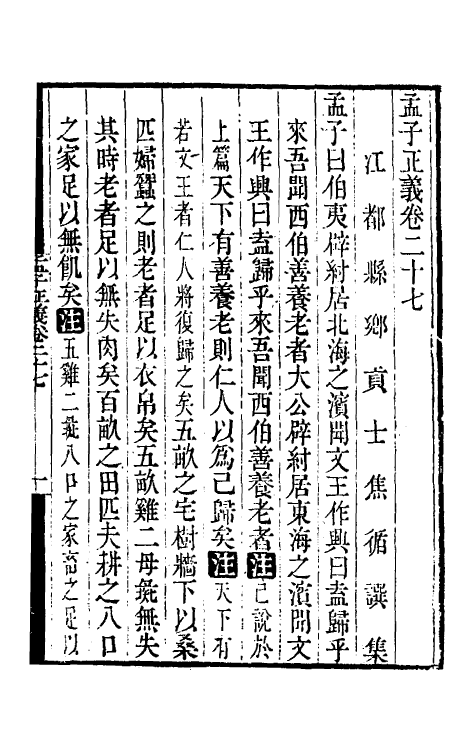 孟子正義卷二十七
江都縣鄉貢士焦循譔集
孟子曰伯夷辟紂居北海之濱聞文王作興曰盍歸乎
來吾聞西伯善養老者大公辟紂居東海之濱聞文
王作興曰盍歸乎來吾聞西伯善養老者注己說於
上篇天下有善養老則仁人以爲己歸矣注天下有
若文王者仁人將復歸之矣五畝之宅樹牆下以桑
匹婦蠶之則老者足以衣帛矣五畝雞二母彘無失
其時老者足以無失肉矣百畝之田匹夫耕之八口
之家足以無飢矣注五雞二彘八口之家畜之足以
孟子正義卷二十七
一